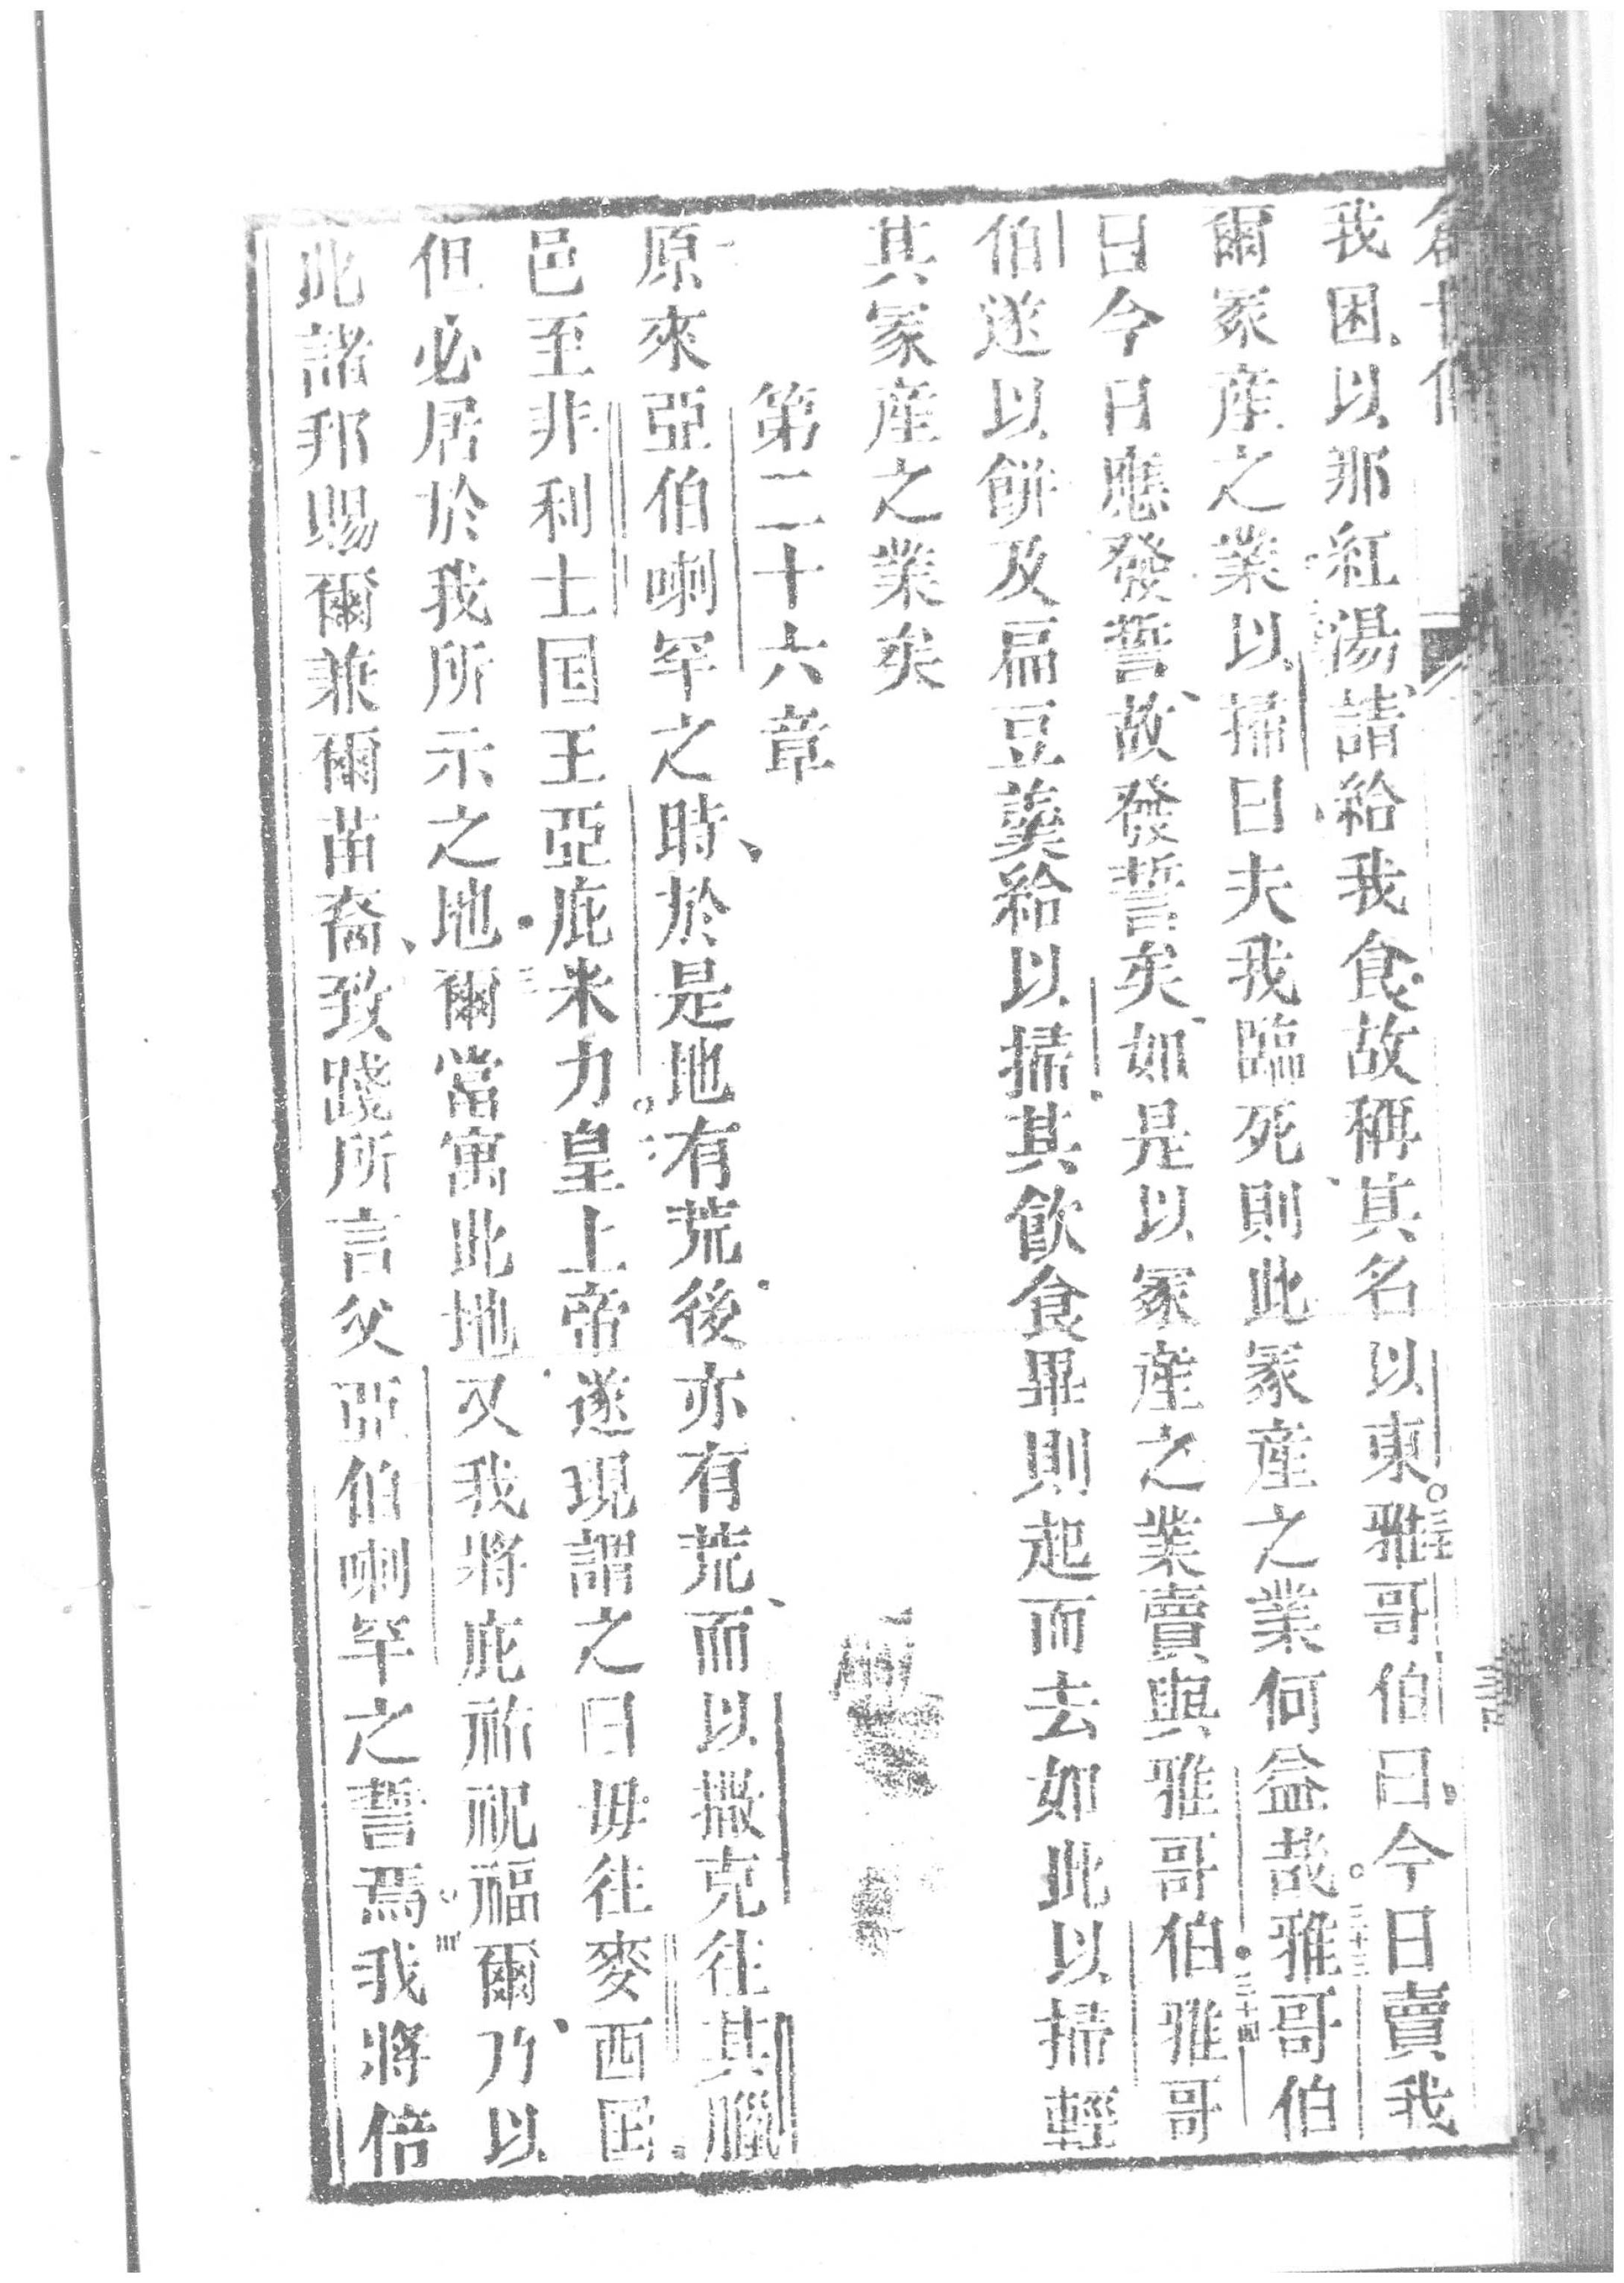 我困以那紅湯請給我食故稱其名以東雅哥伯曰今日賣我
三十一
爾冢產之業以掃曰夫我臨死則此冢產之業何益哉雅哥伯
三十二
三十三
曰今日應發誓故發誓矣如是以冢產之業賣與雅哥伯雅哥
三十四
伯遂以餅及扁豆羹給以掃其飲食畢則起而去如此以掃輕
其冢產之業矣
第二十六章
一
原來亞伯喇罕之時、於是地有荒後亦有荒、而以撒克往其臘
二
邑至非利士囯王亞庇米力皇上帝遂現謂之曰毋往麥西囯
三
但必居於我所示之地爾當寓此地又我將庇祐祝福爾、乃以
四
此諸邦賜爾兼爾苗裔、致踐所言父亞伯喇罕之誓焉我將倍